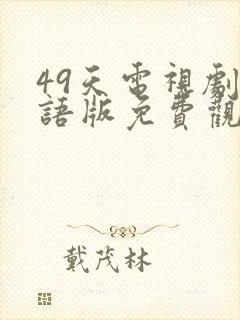 49天電視劇
語版免費觀
戴茂林